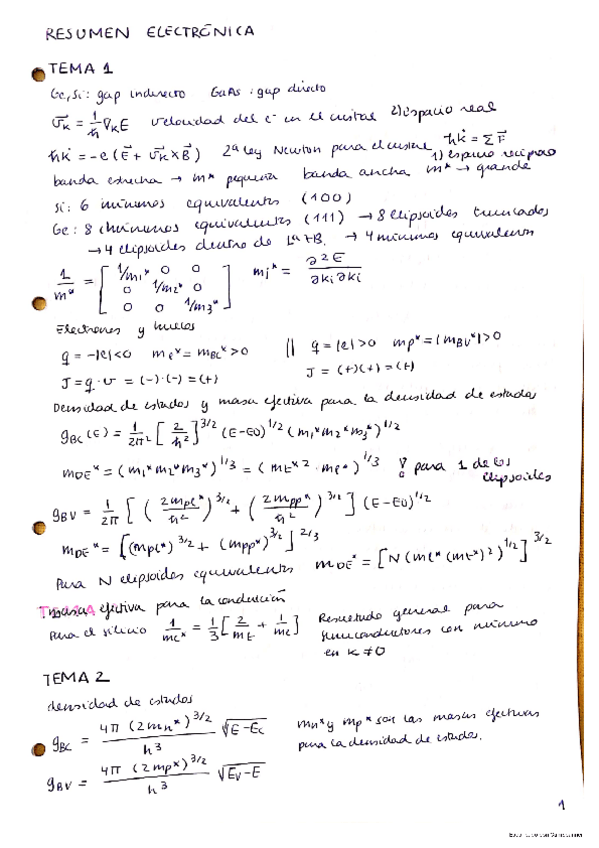 RESUMEN ELECTRÓNICA
TEMA 1
Ge, Si: gap indirecto GaAs: gap directo
v⃗k = 1/ħ ∇k E velocidad del e⁻ en el cristal 2) espacio real
ħk̇ = -e (E⃗ + v⃗k × B⃗) 2ª ley Newton para el cristal ħk̇ = ΣF⃗
1) espacio recíproco
banda estrecha → m* pequeña banda ancha m* → grande
Si: 6 mínimos equivalentes (100)
Ge: 8 mínimos equivalentes (111) → 8 elipsoides truncados
→ 4 elipsoides dentro de 1ª ZB. → 4 mínimos equivalentes
1/m* = [1/m1* 0 0; 0 1/m2* 0; 0 0 1/m3*] mi* = ∂²E/∂ki∂ki
Electrones y huecos
q = -|e|<0 me* = mBC* >0 || q = |e|>0 mp* = |mBV*|>0
J = q·v = (-)·(-) = (+) J = (+)(+) = (+)
Densidad de estados y masa efectiva para la densidad de estados
gBC(E) = 1/2π² [2/ħ²]^3/2 (E-E0)^1/2 (m1* m2* m3*)^1/2
mDE* = (m1* m2* m3*)^1/3 = (mt*² · ml*)^1/3 ! para 1 de los
elipsoides
gBV = 1/2π [(2mpl*/ħ²)^3/2 + (2mpp*/ħ²)^3/2] (E-E0)^1/2
mDE* = [(mpl*)^3/2 + (mpp*)^3/2]^2/3
Para N elipsoides equivalentes mDE* = [N (ml* (mt*)²)^1/2]^3/2
masa efectiva para la conducción
Para el silicio 1/mc* = 1/3 [2/mt + 1/ml] Resultado general para
semiconductores con mínimo
en k ≠ 0
TEMA 2
densidad de estados
gBC = 4π (2mn*)^3/2 / h³ √E-Ec mn* y mp* son las masas efectivas
para la densidad de estados.
gBV = 4π (2mp*)^3/2 / h³ √Ev-E
1